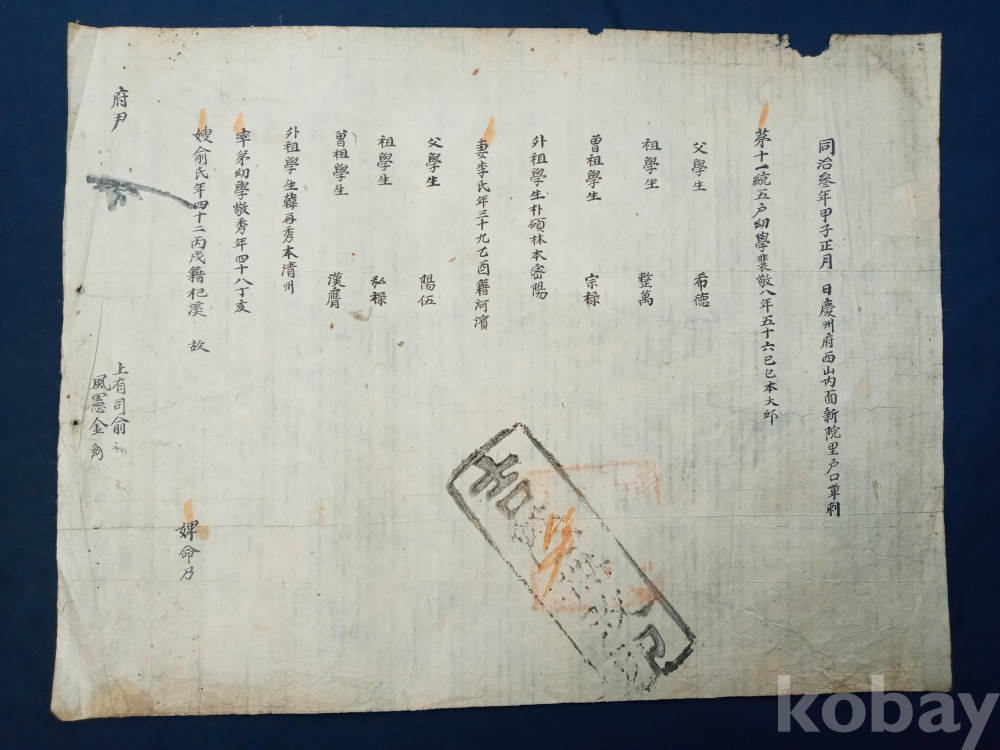 同治參年甲子正月 日慶州府西山內面新院里戶口單刺
苐十一統五戶幼學裴敬八年五十六己巳本大邱
父學生 希德
祖學生 整萬
曾祖學生 宗祿
外祖學生朴碩林本密陽
妻李氏年三十九乙酉籍河濱
父學生 陽伍
祖學生 弘祿
曾祖學生 漢膺
外祖學生韓再秀本清州
率弟幼學敬秀年四十八丁亥
嫂俞氏年四十二丙戌籍杞溪 故
婢命乃
上有司俞
風憲金
府尹
kobay